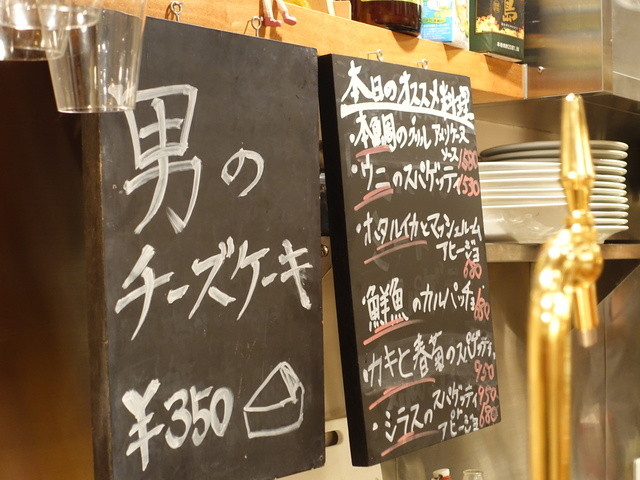 男の
チーズケーキ
¥350
本日のオススメ料理
・本鯛のグリル アメリケーヌ
ソース
・ウニのスパゲッティ 1530
・ホタルイカとマッシュルーム
アヒージョ
680
・鮮魚のカルパッチョ
・カキと春菊のスパゲッティ
950
・シラスのスパゲッティ 950
アヒージョ 680